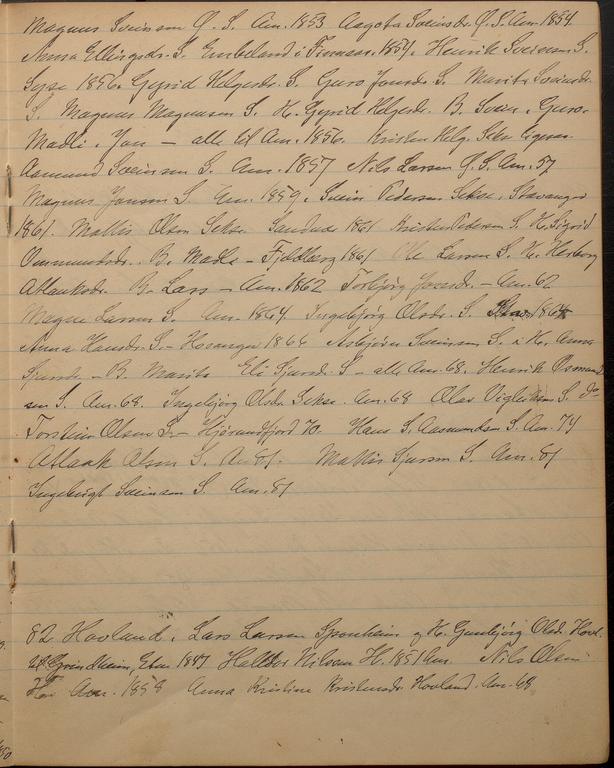 Magnus Sveinsen Ø. S. Am. 1853 Aagota Sveinsdr. Ø. S. Am. 1854
Anna Ellingsdr. S. Embeland i Finnaas. 1854. Henrik Sveinsen S.
Syse 1856. Gyrid Helgesdr. S. Guro Jonsdr. S. Marita Sveinsdr
S. Magnus Magnusen S. H. Gyrid Helgesdr. B. Svein, Guro,
Madli, Jon — alle til Am. 1856. Kristen Helg. Sekse
Aamund Sveinsen S. Am. 1857 Nils Larsen Ø. S. Am. 57
Magnus Jonsen S. Am. 1859. Svein Pedersen Sekse, Stavanger
1861. Mattis Olsen Sekse. 1861 Kristen Pedersen S. H. Sigrid
Ommundsdr. B. Madle — Fjeldberg 1861 Ole Larsen S. H. Herborg
Atlaksdr. B. Lars — Am. 1862 Torbjørg Jonsdr. — Am. 62
Magne Larsen S. Am. 1864. Ingebjørg Olsdr. S. 1864
Anna Hansdr. S. — Hosanger 1866 Asbjørn Sveinsen S. i H. Anna
Sjursdr. — B. Marita Eli Sjursdr. S — alle Am. 68. Henrik Osmund
sen S. Am. 68. Ingebjørg Olsdr. Sekse. Am. 68 Olav Vigleiksen S. do
Torstein Olsen S. — Hjørundfjord 70. Hans S. Aasmundsen S. Am. 74
Atlaak Olsen S. Am 81. Mattis Sjursen S. Am. 81
Ingebrigt Sveinsen S. Am. 81
82 Hovland. Lars Larsen Sponheim og H. Gunbjørg Olsdr. Hovl.
til Grindheim, Etne 1847 Halldor Nilsen H. 1851 Am. Nils Olsen
Hov Am. 1858 Anna Kristine Kristensdr. Hovland. Am. 68